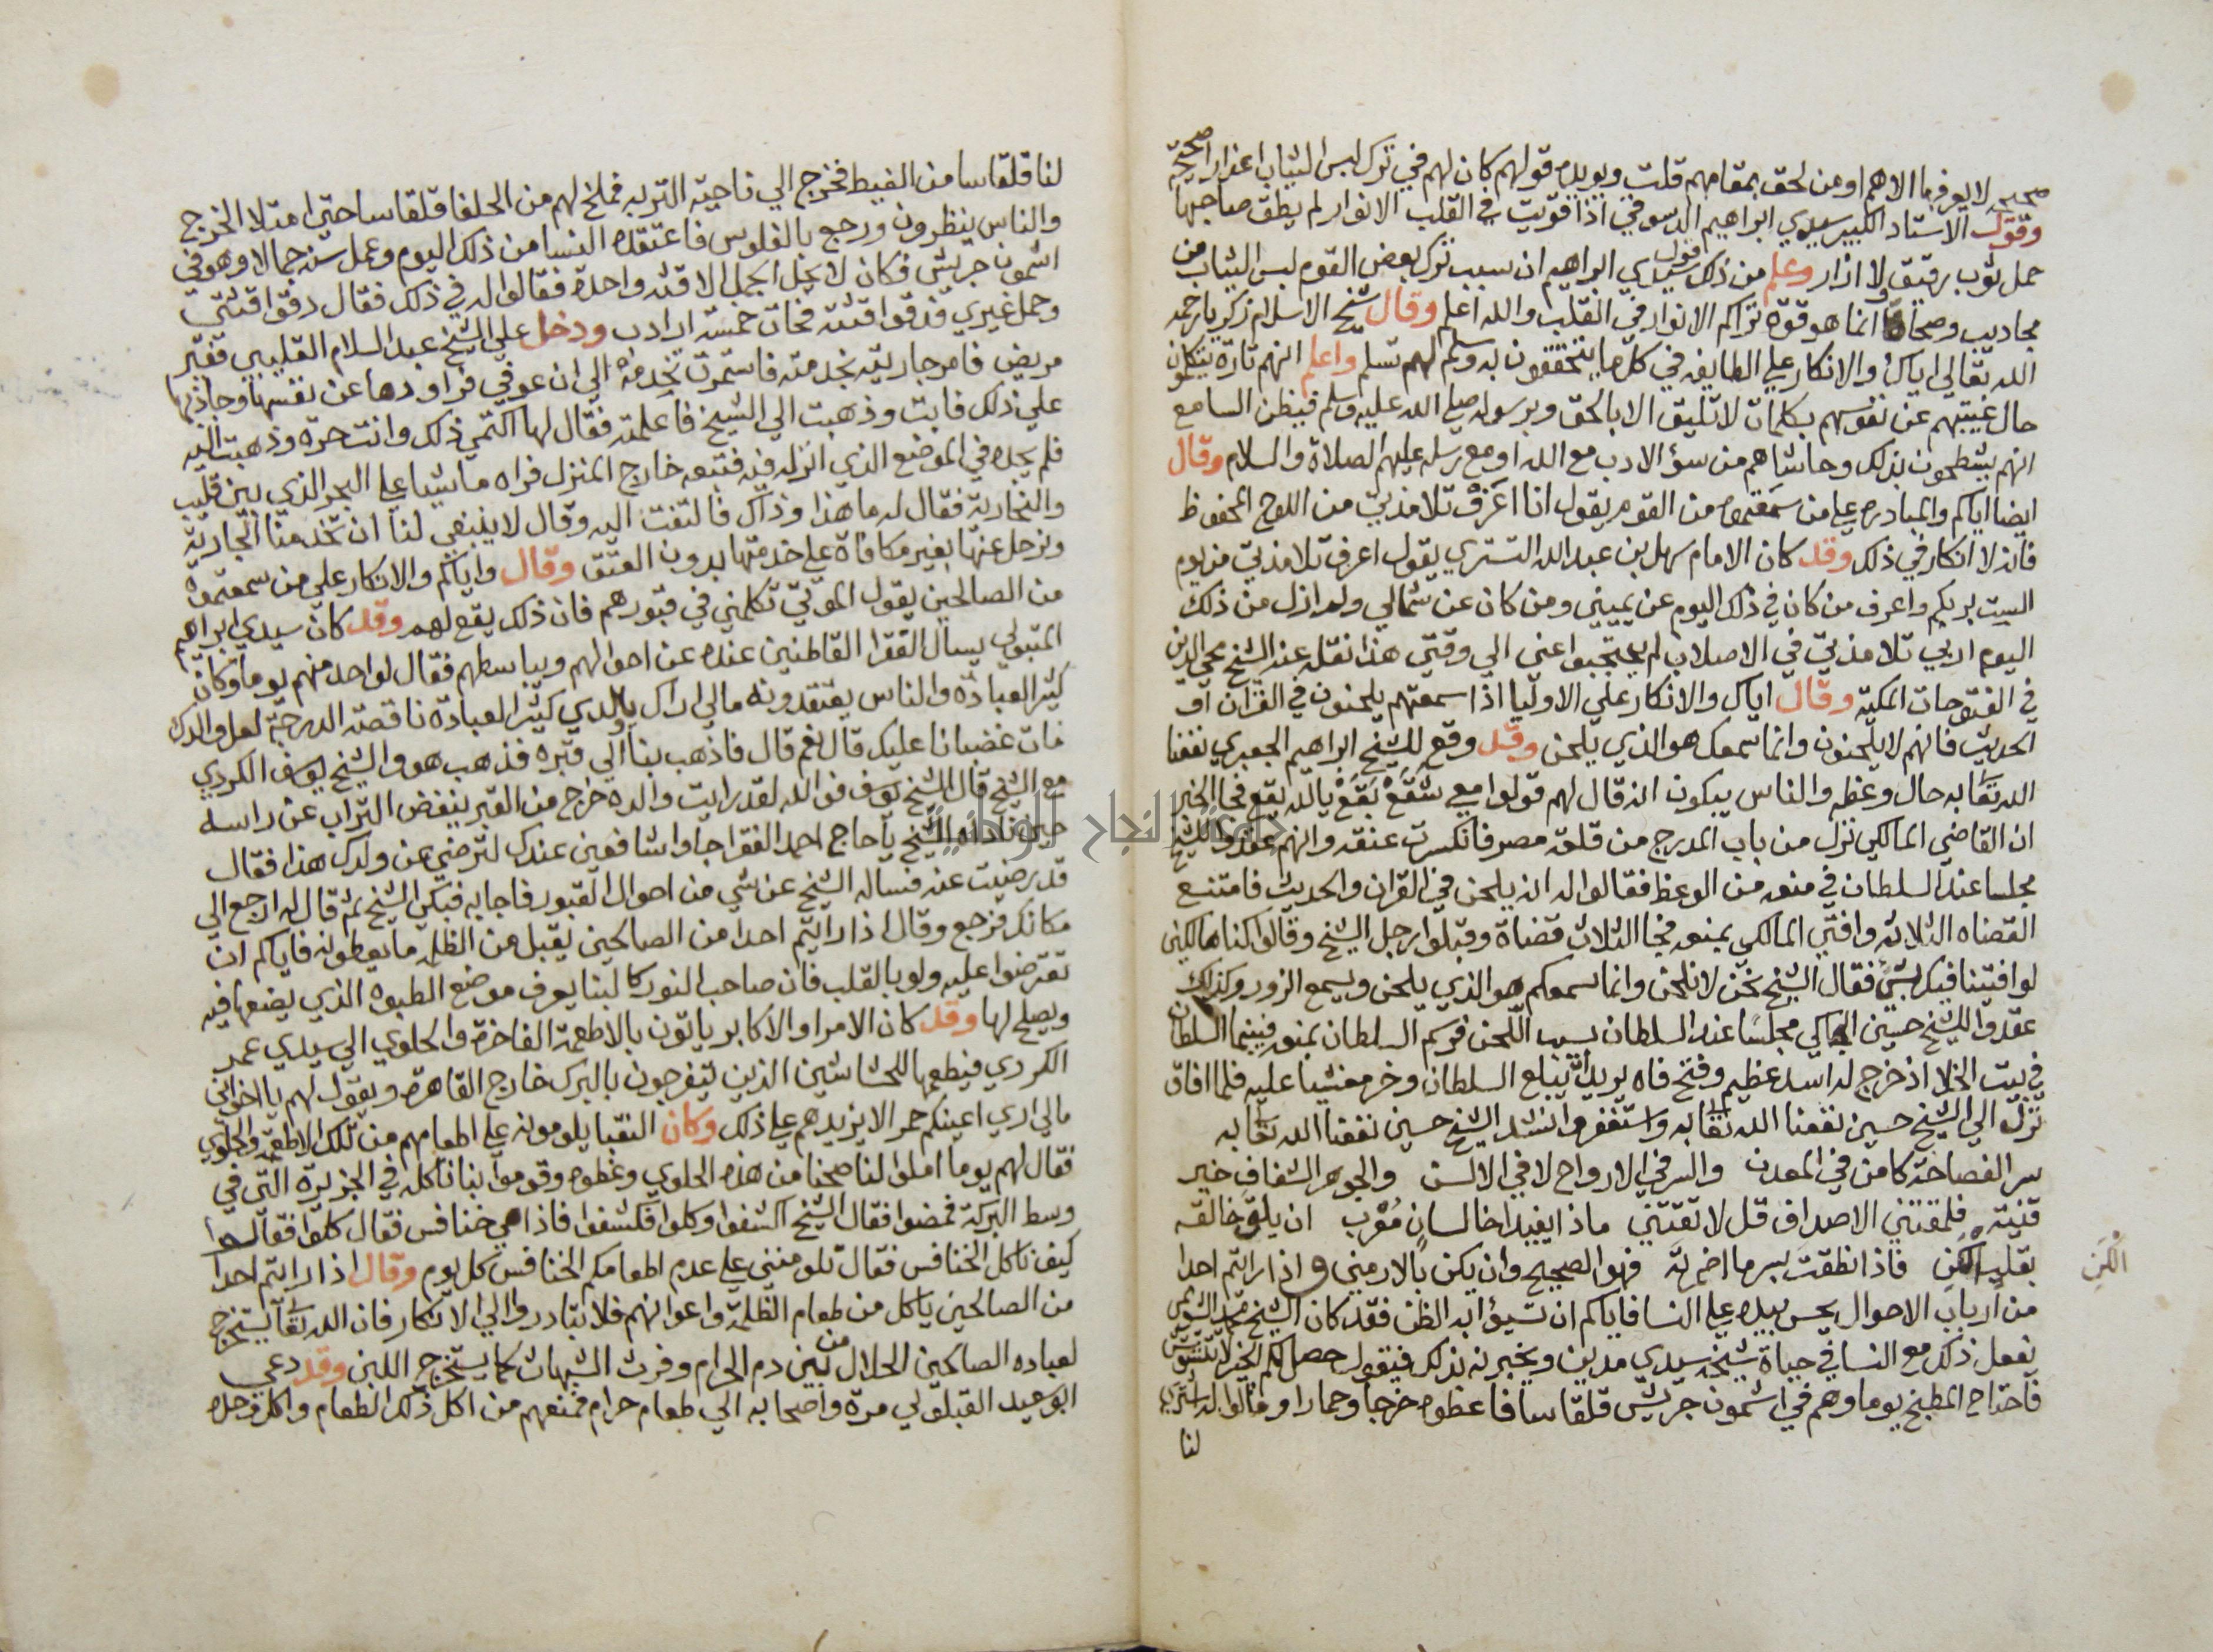 صحيحه لا يعرفها الا هم او من لحق بمقامهم قلت ويويده قولهم كان لهم في ترك لبس الثياب اعذارا صحيحة
وقول الاستاد الكبير سيدي ابراهيم الدسوقي اذا قويت في القلب الانوار لم يطق صاحبها
حمل ثوب رقيق ولا ازار وعلم من ذلك قول سيدي ابراهيم ان سبب ترك بعض القوم لبس الثياب من
مجاديب وصحاة انما هو قوة تراكم الانوار في القلب والله اعلم وقال شيخ الاسلام زكريا رحمه
الله تعالي اياك والانكار علي الطايفه في كل ما يتحققون به وسلم لهم تسلم واعلم انهم تارة يتكلمون
حال غيبتهم عن نفوسهم بكلمات لا تليق الا بالحق وبرسوله صلي الله عليه وسلم فيظن السامع
انهم يشطحون بذلك وحاشاهم من سؤ الادب مع الله او مع رسله عليهم الصلاة والسلام وقال
ايضا اياكم والمبادره علي من سمعتموه من القوم يقول انا اعرف تلامذتي من اللوح المحفوظ
فانه لا انكار في ذلك وقد كان الامام سهل بن عبد الله التستري يقول اعرف تلامذتي من يوم
الست بربكم واعرف من كان في ذلك اليوم عن يميني ومن كان عن شمالي ولم ازل من ذلك
اليوم اربي تلامذتي في الاصلاب لم يحتجبوا عني الي وقتي هذا نقله عنه الشيخ محيي الدين
في الفتوحات المكية وقال اياك والانكار علي الاوليا اذا سمعتهم يلحنون في القران او
الحديث فانهم لا يلحنون وانما سمعك هو الذي يلحن وقد وقع للشيخ ابراهيم الجعبري نفعنا
الله تعا به حال وعظه والناس يبكون انه قال لهم قولوا معي شقع بقع يالله يقع فجا الخبر
ان القاضي المالكي نزل من باب المدرج من قلعة مصر فانكسرت عنقه وانهم عقدوا للشيخ
مجلسا عند السلطان في منعه من الوعظ فقالوا له انه يلحن في القران والحديث فامتنع
القضاه الثلاثه وافتي المالكي بمنعه فجا الثلاث قضاة وقبلوا رجل الشيخ وقالوا كنا هالكين
لو افتينا فيك بشي فقال الشيخ نحن لا نلحن وانما سمعكم هو الذي يلحن ويسمع الزور وكذلك
عقدوا للشيخ حسين الجاكي مجلسا عند السلطان بسبب اللحن فرسم السلطان بمنعه فبينما السلطان
في بيت الخلا اذ خرج له اسد عظيم وفتح فاه يريد ان يبلع السلطان وخر مغشيا عليه فلما افاق
نزل الي الشيخ حسين نفعنا الله تعا به واستغفر وانشد الشيخ حسين نفعنا الله تعا به
سر الفصاحة كامن في المعدن والسر في الارواح لا في الالسن والجوهر الشفاف خير
قنية فلمقتني الاصداف قل لا تقتني ماذا يفيد اخا لسان معرب ان يلق خالقه
بقلب الكن فاذا نطقت بسر ما اضمرته فهو الصحيح وان يكن بالارمني واذا رايتم احدا
الكن
من ارباب الاحوال يحس بيده علي النسا فاياكم ان تسيؤا به الظن فقد كان الشيخ محمد الشويمي
يفعل ذلك مع النسا في حياة شيخه سيدي مدين ويخبرنه بذلك فيقول حصل لكم الخير لا تتشوش
فاحتاج المطبخ يوما وهم في اشمون جريش قلقاسا فاعطوه خرجا وحمارا وقالوا له اشتري
لنا
لنا قلقاسا من الغيط فخرج الي ناحية التربه فملخ لهم من الحلفا قلقاسا حتي امتلا الخرج
والناس ينظرون ورجع بالفلوس فاعتقده النسا من ذلك اليوم وعمل سنه جمالا وهو في
اشمون جريش فكان لا يحمل الجمل الا قته واحدة فقالوا له في ذلك فقال دقوا قتتي
وحمل غيري فدقوا قتته فجات خمسة ارادب ودخل علي الشيخ عبد السلام القليبي فقير
مريض فامر جاريته بخدمته فاستمرت تخدمه الي ان عوفي فراودها عن نفسها وجاذبها
علي ذلك فابت وذهبت الي الشيخ فاعلمته فقال لها اكتمي ذلك وانت حرة وذهبت اليه
فلم يجده في الموضع الذي انزله فيه فتبعه خارج المنزل فراه ماشيا علي البحر الذي بين قليب
والنحارية فقال له ما هذا وذاك فالتفت اليه وقال لا ينبغي لنا ان تخدمنا الجارية
ونرحل عنها بغير مكافاة علي خدمتها بدون العتق وقال واياكم والانكار علي من سمعتموه
من الصالحين يقول الموتي تكلمني في قبورهم فان ذلك يقع لهم وقد كان سيدي ابراهيم
المتبولي يسال الفقرا القاطنين عنده عن احوالهم ويباسطهم فقال لواحد منهم يوما وكان
كثير العبادة والناس يعتقدونه مالي اراك يا ولدي كثير العبادة ناقصة الدرجة لعل والدك
مات غضبانا عليك قال نعم قال فاذهب بنا الي قبره فذهب هو والشيخ يوسف الكردي
مع الشيخ قال الشيخ يوسف فوالله لقد رايت والده خرج من القبر ينفض التراب عن راسه
حين ناداه الشيخ يا حاج احمد الفقرا جاوا شافعين عندك لترضي عن ولدك هذا فقال
قد رضيت عنه فساله الشيخ عن شي من احوال القبور فاجابه فبكي الشيخ ثم قال له ارجع الي
مكانك فرجع وقال اذا رايتم احدا من الصالحين يقبل من الظلمه ما يعطونه فاياكم ان
تعترضوا عليه ولو بالقلب فان صاحب النور كالبنا يعرف موضع الطوبه الذي يضعها فيه
ويصلح لها وقد كان الامرا والاكابر ياتون بالاطعمة الفاخرة والحلوي الي سيدي عمر
الكردي فيطعمها للحشاشين الذين يتفرجون بالبرك خارج القاهرة ويقول لهم يا اخواني
مالي اري اعينكم حمر الا يزيدهم علي ذلك وكان النقبا يلومونه علي اطعامهم من تلك الاطعمة والحلوي
فقال لهم يوما املوا لنا صحنا من هذه الحلوي وغطوه وقوموا بنا ناكله في الجزيرة التي في
وسط البركة فمضوا فقال الشيخ اكشفوا وكلوا فكشفوا فاذا هي خنافس فقال كلوا فقالوا
كيف ناكل الخنافس فقال تلومنني علي عدم اطعامكم الخنافس كل يوم وقال اذا رايتم احدا
من الصالحين ياكل من طعام الظلمة واعوانهم فلا تبادروا الي الانكار فان الله تعا يستخرج
لعباده الصالحين الحلال من بين دم الحرام وفرث الشبهات كما يستخرج اللبن وقد دعي
ابو عبد القبلولي مرة واصحابه الي طعام حرام فمنعهم من اكل ذلك الطعام واكله وحده